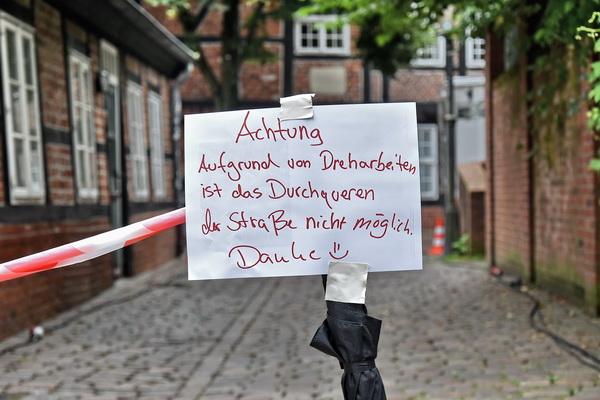 Achtung
Aufgrund von Dreharbeiten
ist das Durchqueren
der Straße nicht möglich.
Danke